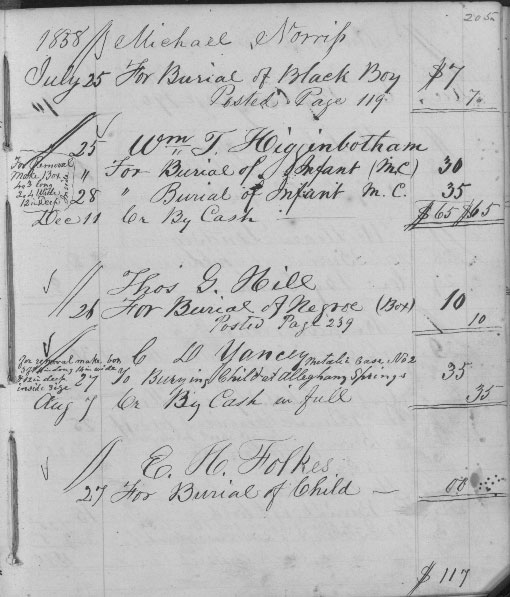 205
1858 Michael Norriss
July 25 For Burial of Black Boy $7
Posted Page 119 7
25 Wm T. Higginbotham
" For Burial of Infant (M.C.) 30
For Removal
Make Box
4 ft 3 long
12 in deep
inside
28 " Burial of Infant M. C. 35
Dec 11 Cr By Cash $65 $65
Thos G. Hill
26 For Burial of Negroe (Box) 10
Posted Page 239 10
C D Yancey Metalic Case No 2
For removal make box
inside size
27 To Burying Child at Alleghany Springs 35
Aug 7 Cr By Cash in full 35
E. H. Folkes
27 For Burial of Child — 00
$ 117